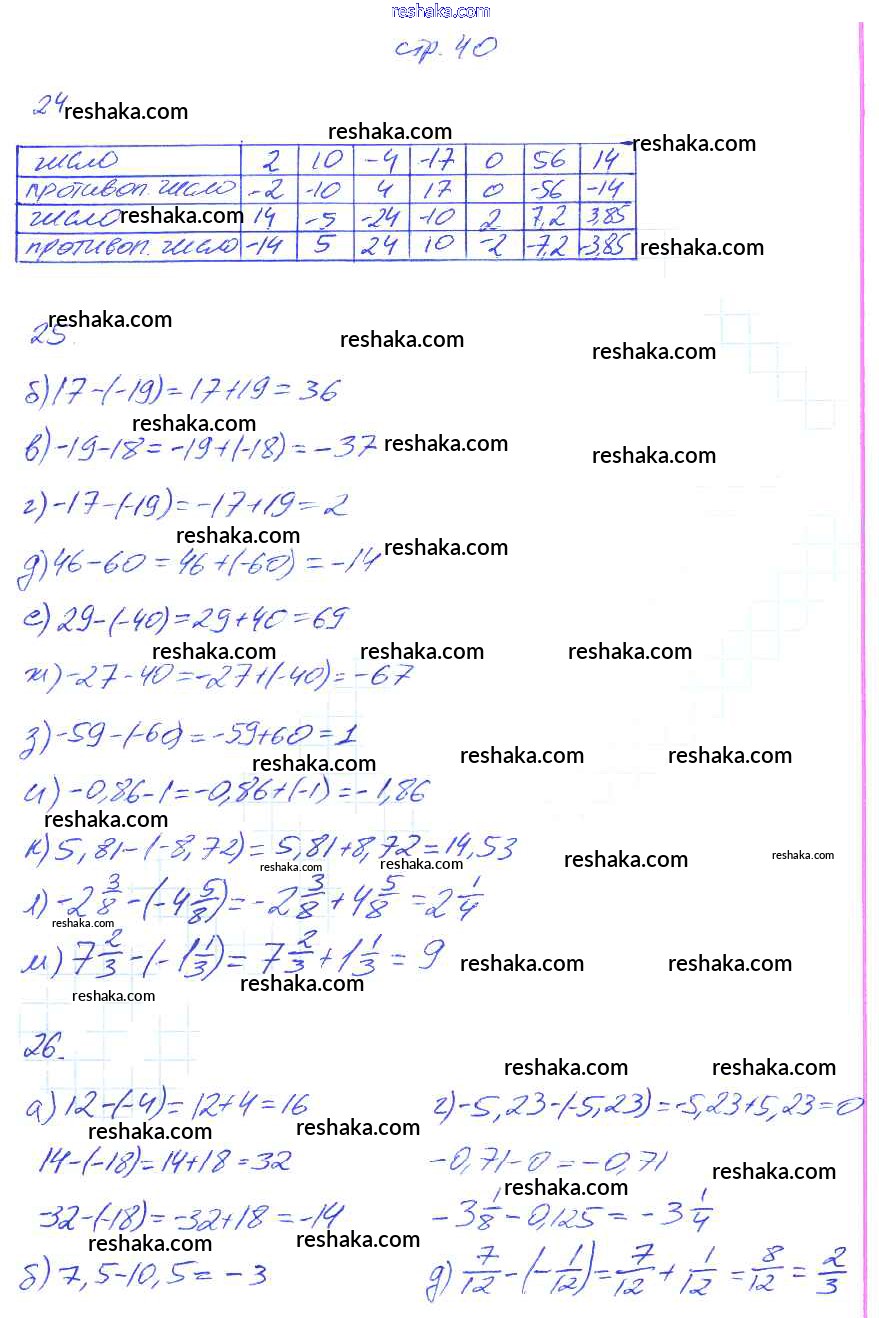 reshaka.com
стр. 40
24 reshaka.com
reshaka.com
reshaka.com
число 2 10 -4 -17 0 56 14
противоп. число -2 -10 4 17 0 -56 -14
число reshaka.com 14 -5 -24 -10 2 7,2 3,85
противоп. число -14 5 24 10 -2 -7,2 -3,85 reshaka.com
reshaka.com
25.
reshaka.com
reshaka.com
б) 17-(-19)=17+19=36
reshaka.com
в) -19-18=-19+(-18)=-37 reshaka.com
reshaka.com
г) -17-(-19)=-17+19=2
reshaka.com
reshaka.com
д) 46-60=46+(-60)=-14
е) 29-(-40)=29+40=69
reshaka.com reshaka.com reshaka.com
ж) -27-40=-27+(-40)=-67
з) -59-(-60)=-59+60=1
reshaka.com reshaka.com reshaka.com
и) -0,86-1=-0,86+(-1)=-1,86
reshaka.com
к) 5,81-(-8,72)=5,81+8,72=14,53
reshaka.com reshaka.com reshaka.com reshaka.com
л) -2 3/8-(-4 5/8)=-2 3/8+4 5/8=2 1/4
reshaka.com
м) 7 2/3-(-1 1/3)=7 2/3+1 1/3=9
reshaka.com reshaka.com
reshaka.com reshaka.com
26.
reshaka.com reshaka.com
а) 12-(-4)=12+4=16 г) -5,23-(-5,23)=-5,23+5,23=0
reshaka.com reshaka.com
14-(-18)=14+18=32 -0,71-0=-0,71
reshaka.com reshaka.com
-32-(-18)=-32+18=-14 -3 1/8-0,125=-3 1/4
reshaka.com reshaka.com
б) 7,5-10,5=-3 д) 7/12-(-1/12)=7/12+1/12=8/12=2/3